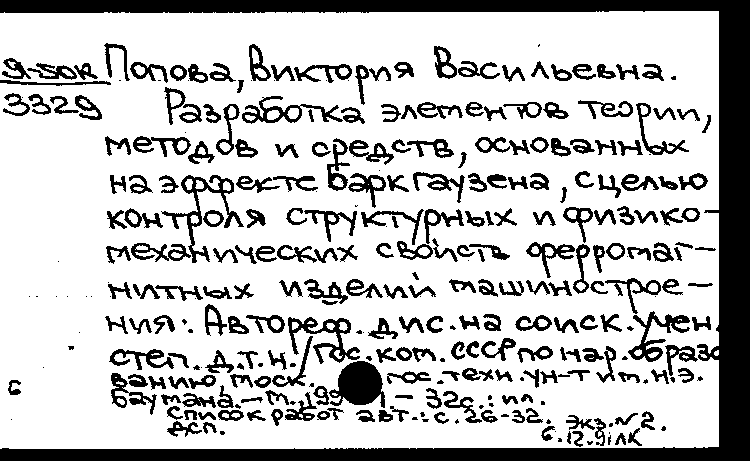 Я-50к Попова, Виктория Васильевна.
3329 Разработка элементов теории,
методов и средств, основанных
на эффекте Баркгаузена, с целью
контроля структурных и физико-
механических свойств ферромаг-
нитных изделий машинострое-
ния: Автореф. дис. на соиск. учен.
степ. д.т.н. / Гос. ком. СССР по нар. образо
ванию, Моск. гос. техн. ун-т им. Н.Э.
Баумана. - М., 199 г. - 32 с.: ил.
Список работ авт.: с. 26-32. Экз. N 2.
ДСП. 6.12.91 ЛК